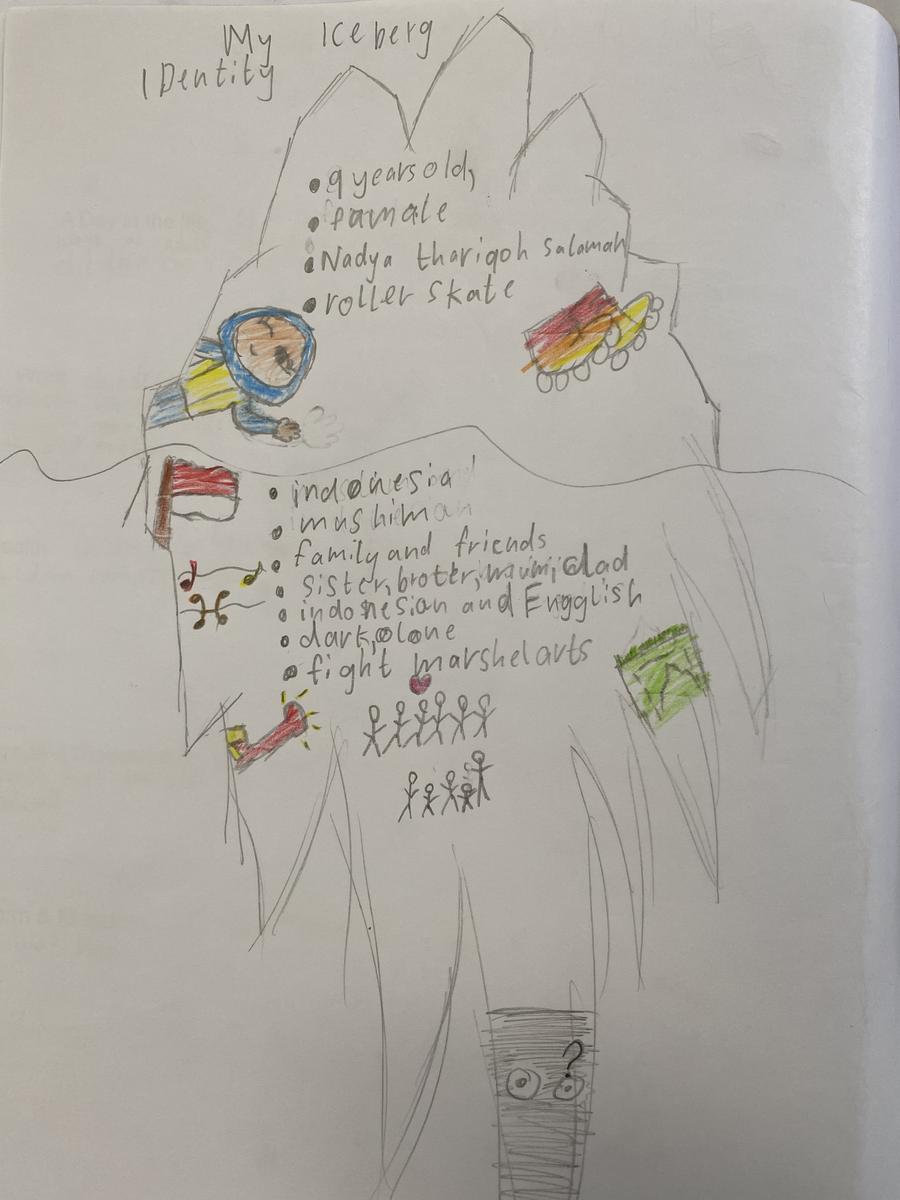 My Iceberg
IDentity
• 9 years old,
• famale
• Nadya thariqoh salamah
• roller skate
• indonesia
• mushiman
• family and friends
• sister, broter, mum, dad
• indonesian and Engglish
• dark, alone
• fight marshel arts
?